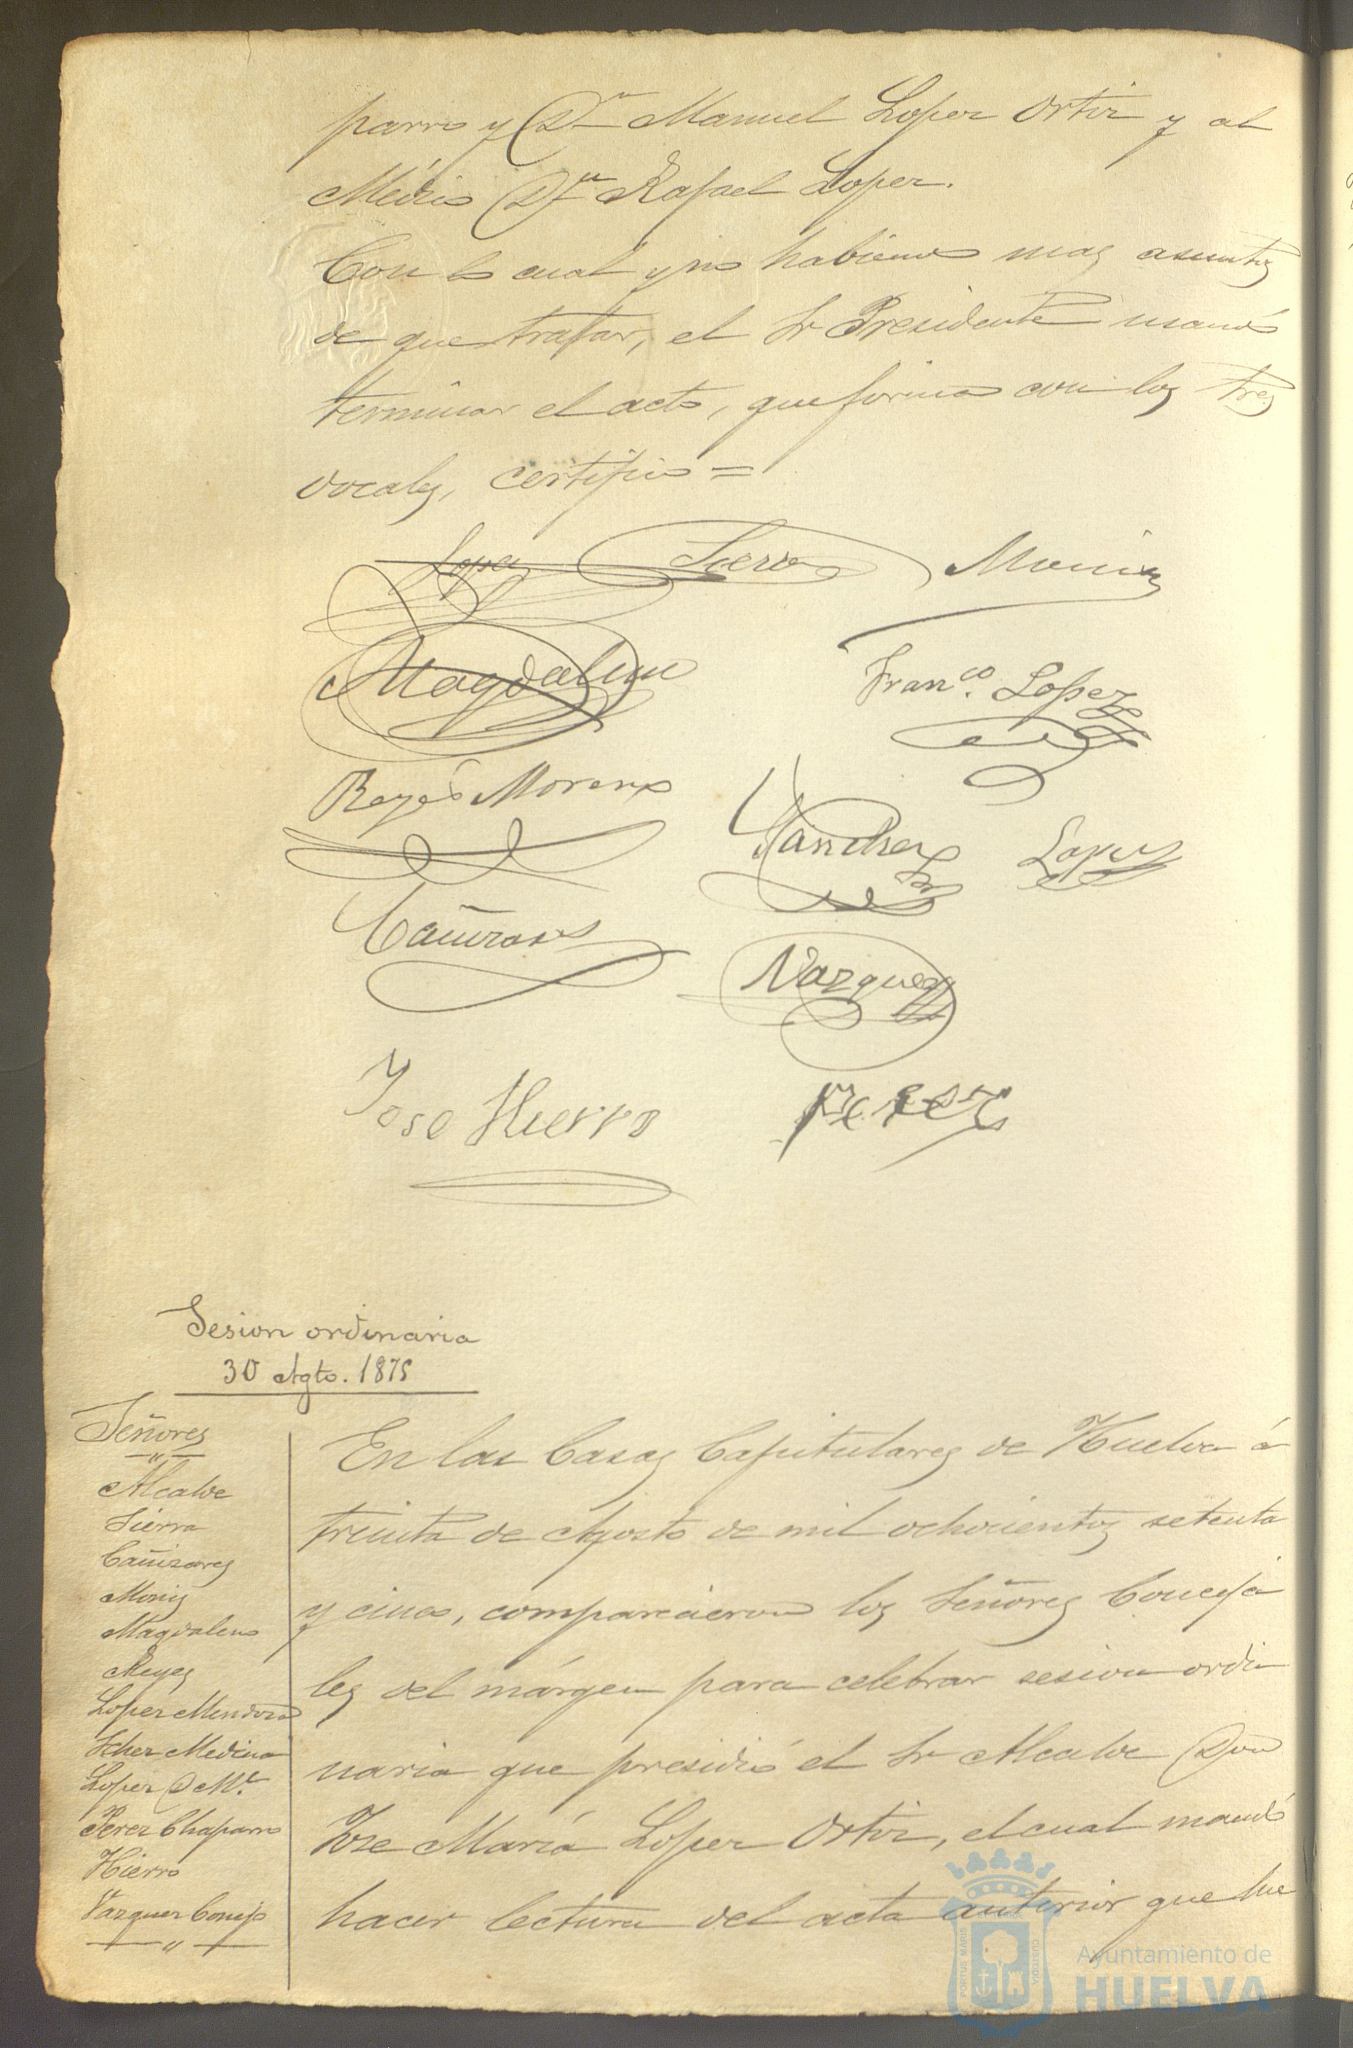 parro y Dn Manuel Lopez Ortiz y al
Médico Dn Rafael Lopez.
Con lo cual y no habiendo mas asuntos
de que tratar, el Sr Presidente mandó
terminar el acto, que firma con los tres
vocales, certifico =
Lopez Sierra Moniz
Magdaleno Franco. Lopez
Reyes Moreno
Sanchez Lopez
Cañizares
Vazquez
Jose Hierro Perez
Sesion ordinaria
30 Agto. 1875
Señores
Alcalde
Sierra
Cañizares
Moniz
Magdaleno
Reyes
Lopez Mendoza
Schez Medina
Lopez D Ml
Perez Chaparro
Hierro
Vazquez Conejo
En las Casas Capitulares de Huelva á
treinta de Agosto de mil ochocientos setenta
y cinco, comparecieron los Señores Conceja
les del márgen para celebrar sesion ordi
naria que presidió el Sr Alcalde Don
Jose María Lopez Ortiz, el cual mandó
hacer lectura del acta anterior que fue
PORTUS MARIS CUSTODIA
Ayuntamiento de
HUELVA